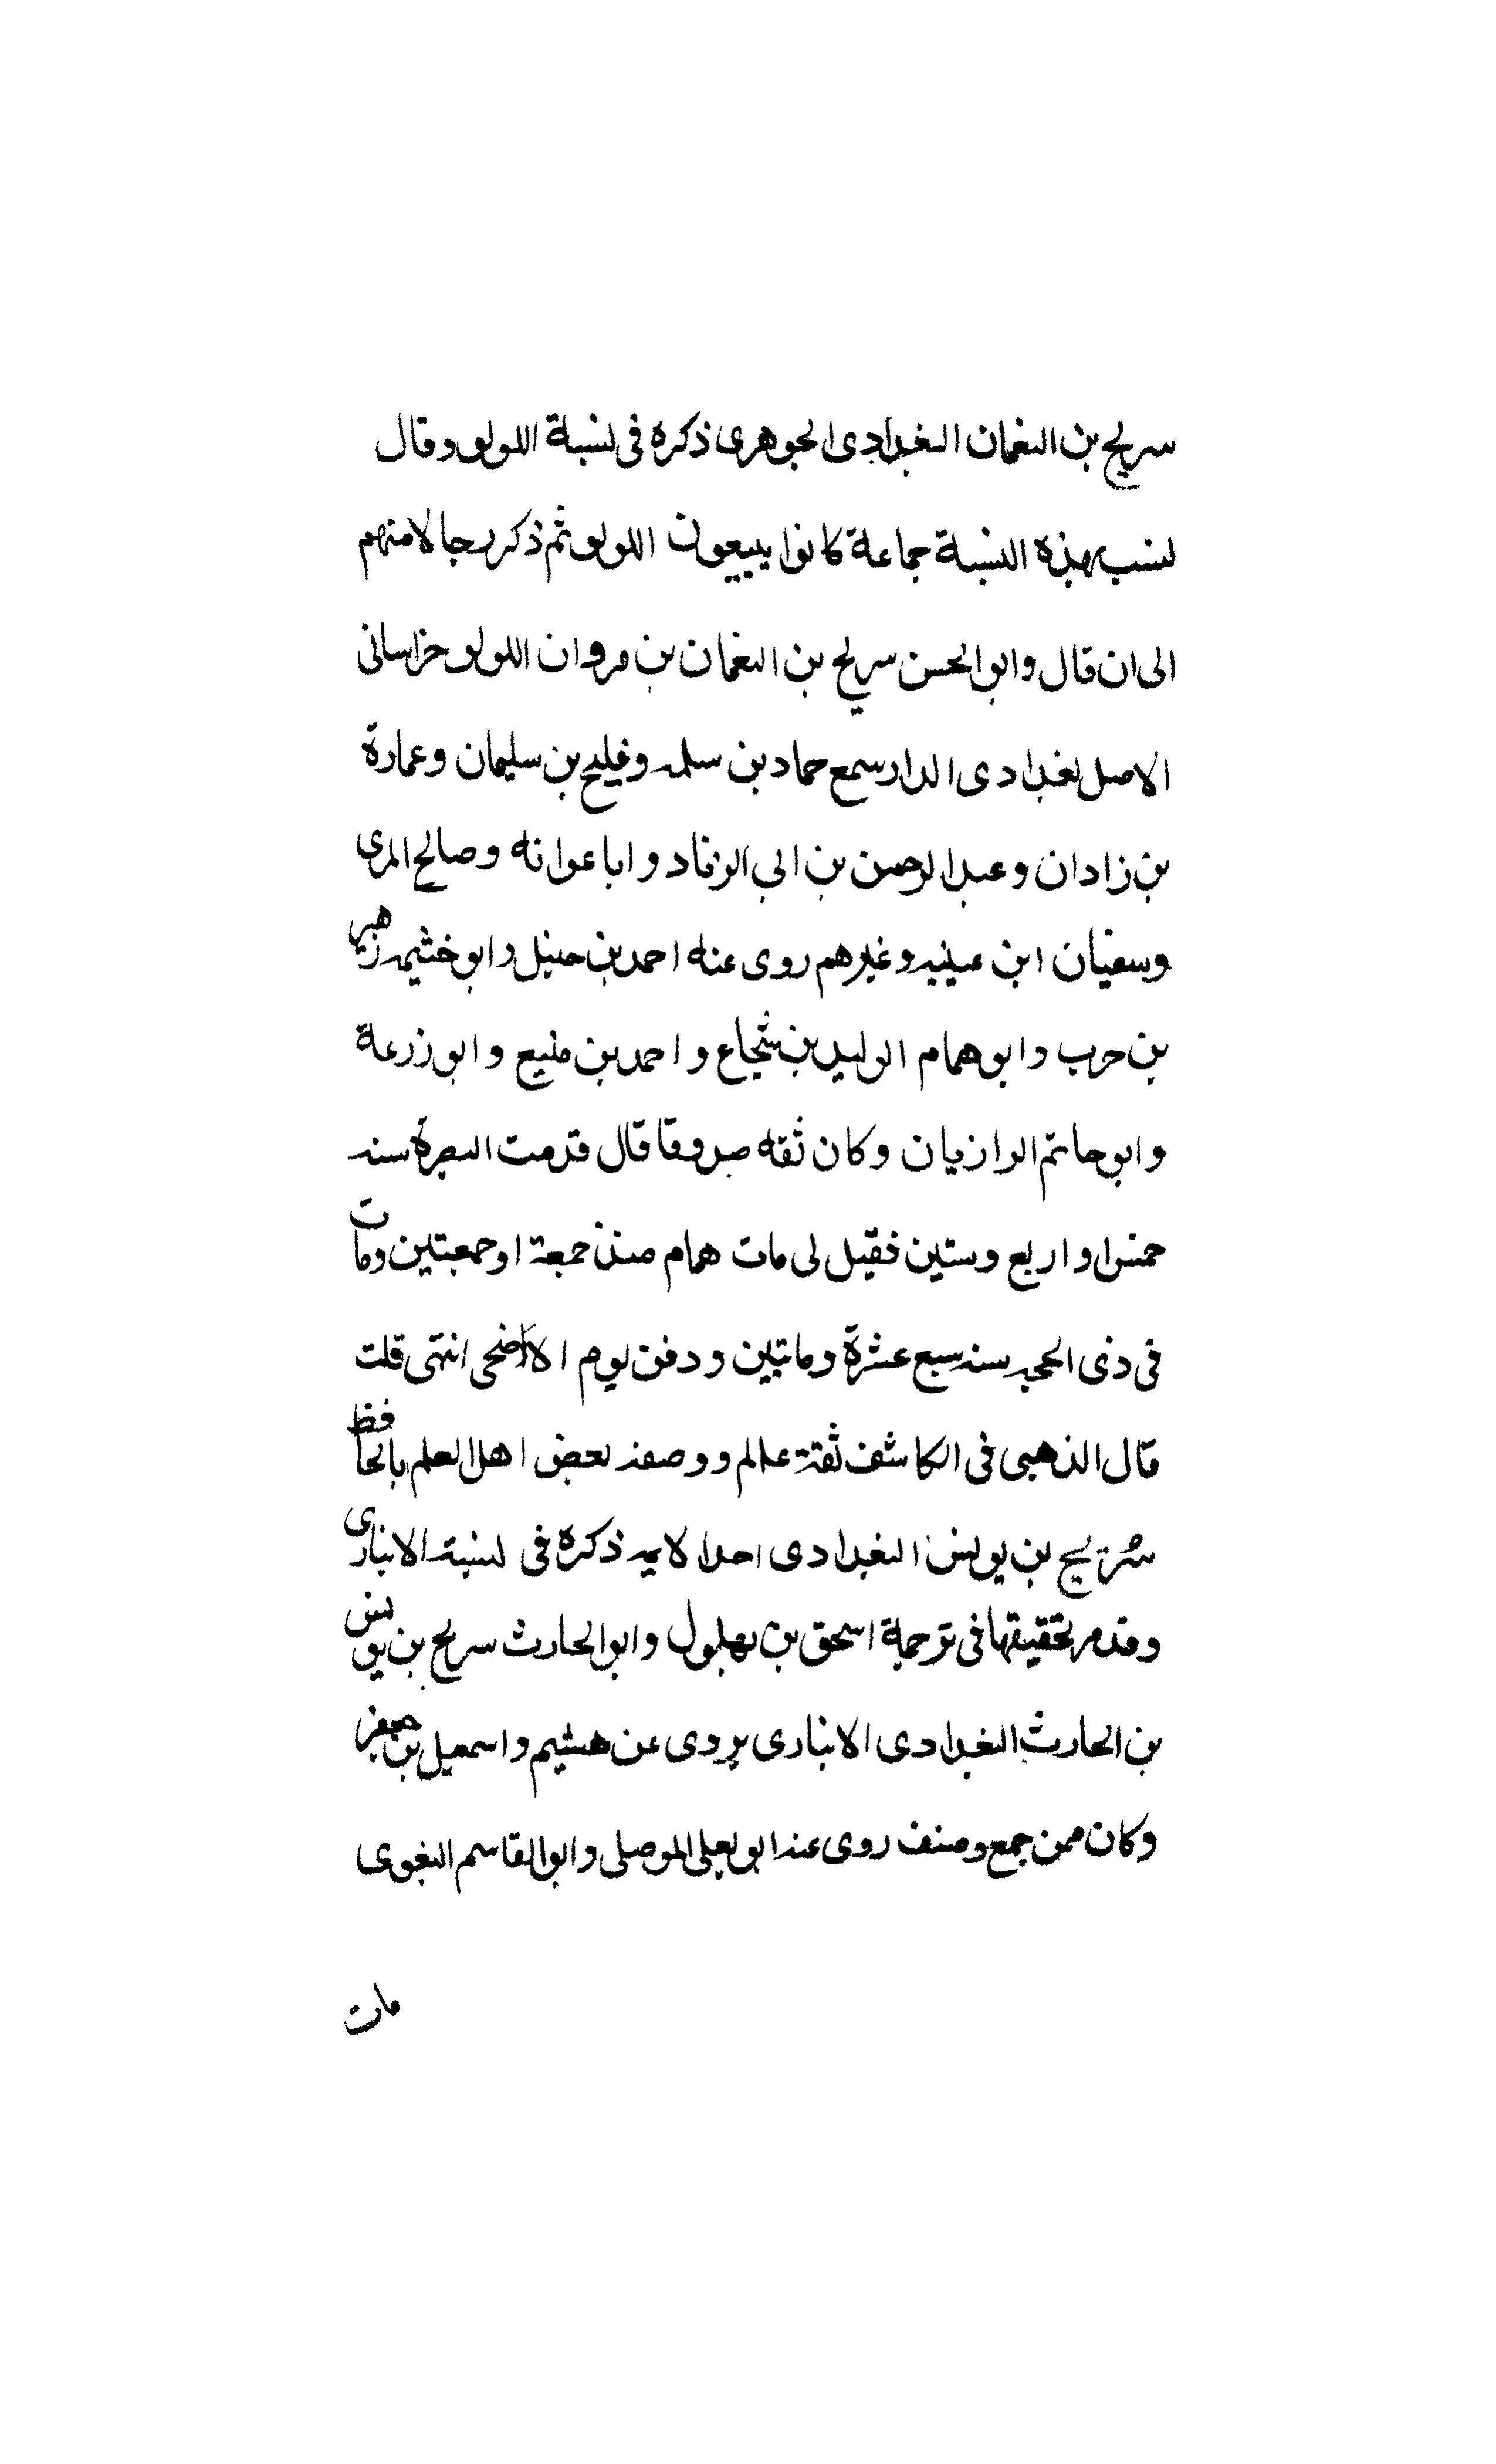 سريج بن النعمان البغدادى الجوهرى ذكره فى نسبة اللولوى وقال
نسب بهذه النسبة جماعة كانوا يبيعون اللولو ثم ذكر رجالا منهم
الى ان قال وابو الحسن سريج بن النعمان بن مروان اللولوى خراسانى
الاصل بغدادى الدار سمع حماد بن سلمه وفليح بن سليمان وعمارة
بن زادان وعبد الرحمن بن ابى الزناد وابا عوانه وصالح المرى
وسفيان ابن عيينه وغيرهم روى عنه احمد بن حنبل وابو خثيمه زهير
بن حرب وابو همام الوليد بن شجاع واحمد بن منيع وابو زرعة
وابو حاتم الرازيان وكان ثقه صدوقا قال قدمت البصرة سنه
خمس او اربع وستين فقيل لى مات همام منذ جمعة او جمعتين ومات
فى ذى الحجه سنه سبع عشرة وماتيين ودفن يوم الاضحى انتهى قلت
قال الذهبى فى الكاشف ثقة عالم ووصفه بعض اهل العلم بالحافظ
سُريج بن يونس البغدادى احد الايمه ذكره فى نسبة الانبارى
وقد مر تحقيقها فى ترجمة اسحق بن بهلول وابو الحارث سريج بن يونس
بن الحارث البغدادى الانبارى يروى عن هشيم واسمعيل بن جعفر
وكان ممن جمع وصنف روى عنه ابو يعلى الموصلى وابو القاسم البغوى
مات